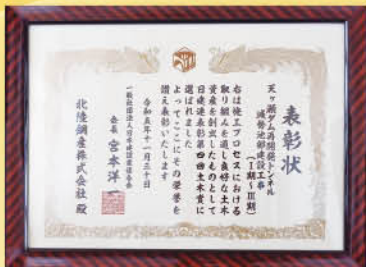 表彰状
天ヶ瀬ダム再開発トンネル
減勢池部建設工事
(Ⅰ期～Ⅲ期)
右は施工プロセスにおける
取り組みを通し良好な土木
資産を創出したものとして
日建連表彰第四回土木賞に
選ばれました
よってここにその栄誉を
讃え表彰いたします
令和五年十一月三十日
一般社団法人日本建設業連合会
会長 宮本洋一
北陸鋼産株式会社 殿